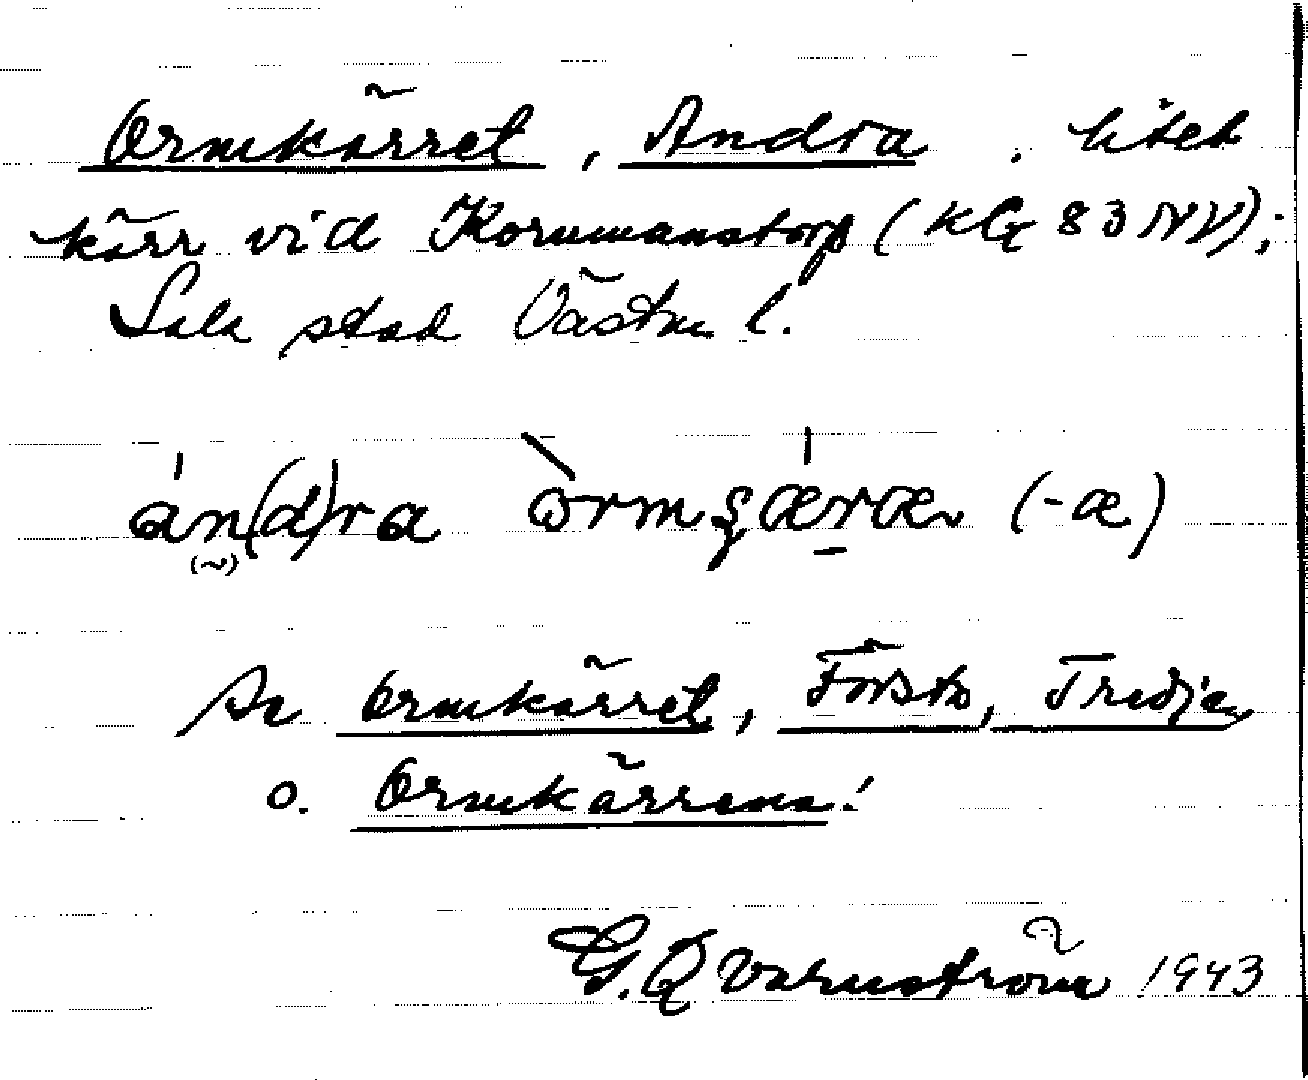 Ormkärret, Andra. litet
kärr vid Kornmanstorp (kG 83 NV);
Sala stad Västm l.
án(d)ra òrmʂǽræ (-æ)
(~)
Se Ormkärret, Första, Tredje,
o. Ormkärrena!
G. Qvarnström 1943